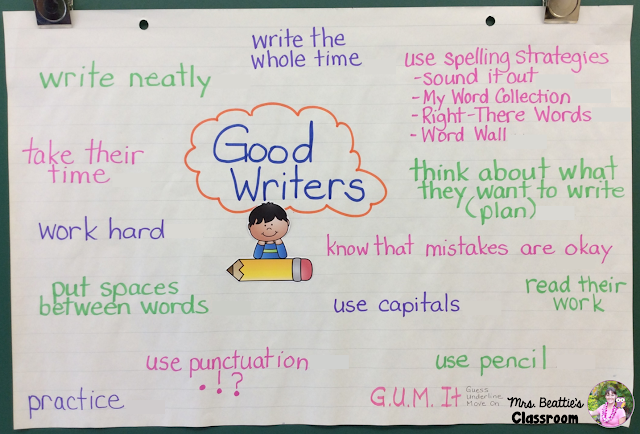 write the
whole time
write neatly
use spelling strategies
- sound it out
- My Word Collection
- Right-There Words
- Word Wall
Good
Writers
take their
time
think about what
they want to write
(plan)
work hard
know that mistakes are okay
put spaces
between words
use capitals
read their
work
use punctuation
. ! ?
use pencil
practice
G.U.M. It
Guess
Underline
Move On
Mrs. Beattie's
Classroom